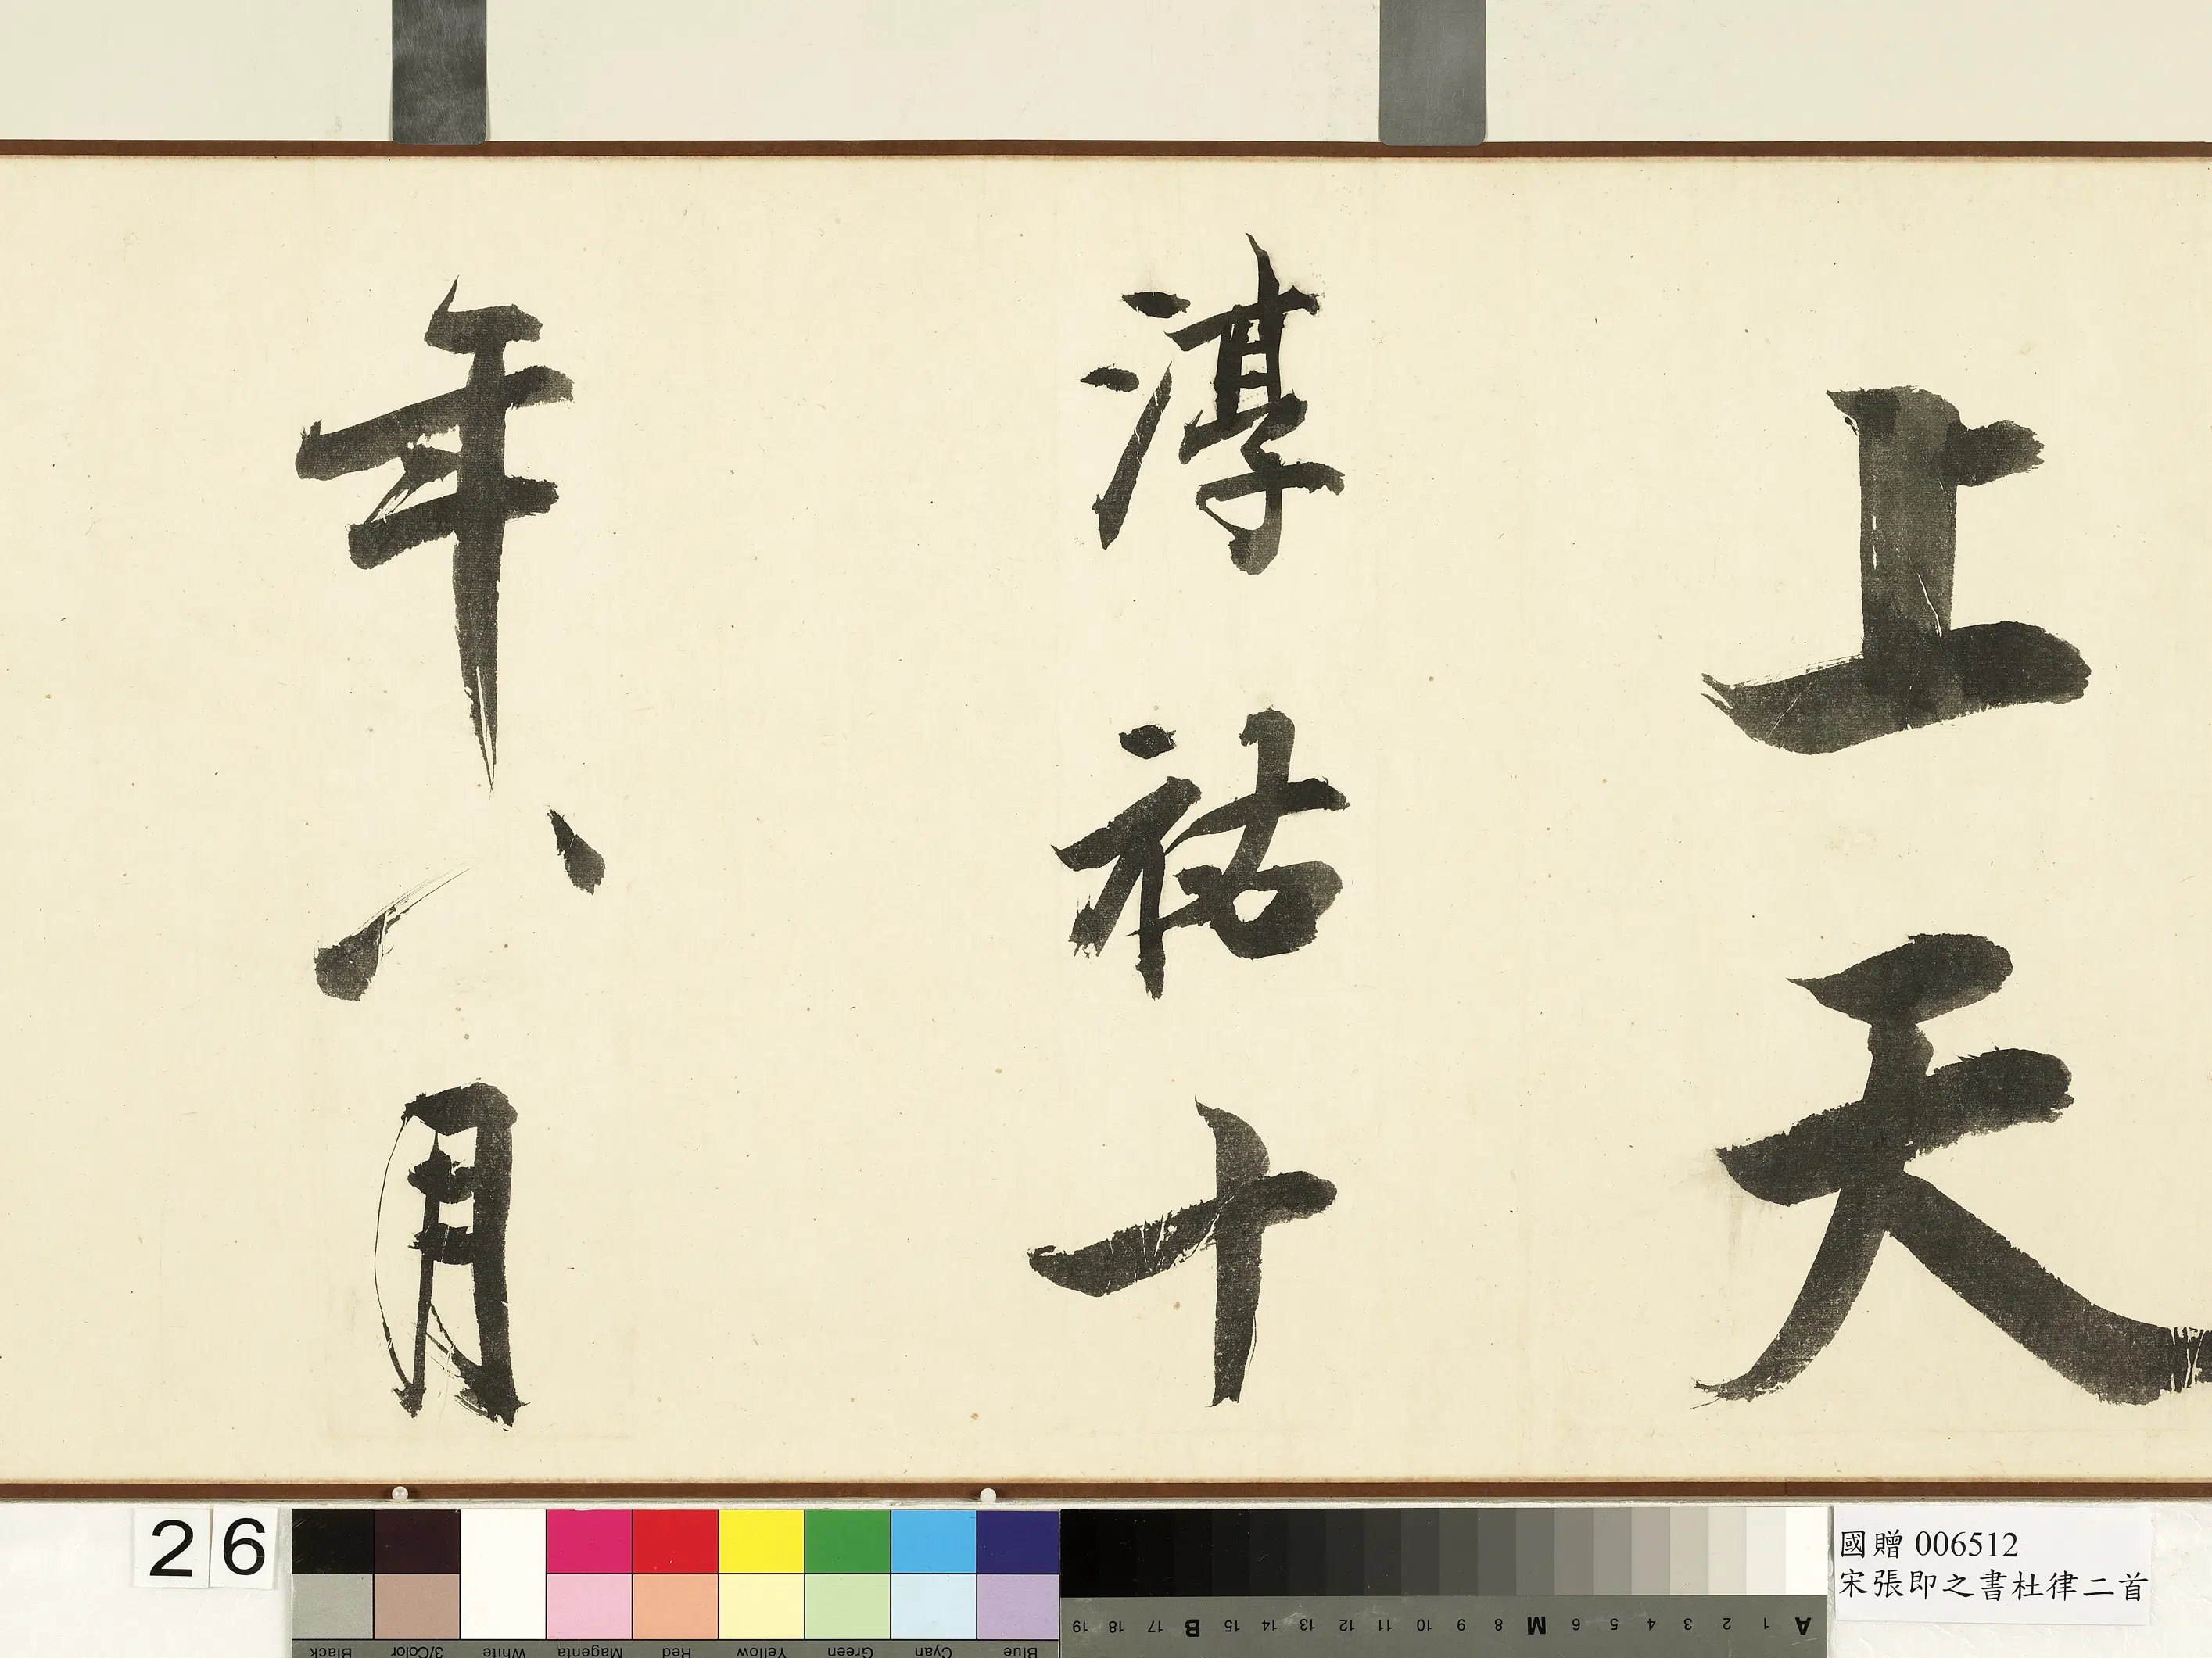 上天
淳祐十
年八月
26
國贈 006512
宋張即之書杜律二首
Black 3/Color White Magenta Red Yellow Green Cyan Blue
A 1 2 3 4 5 6 M 8 9 10 11 12 13 14 15 B 17 18 19